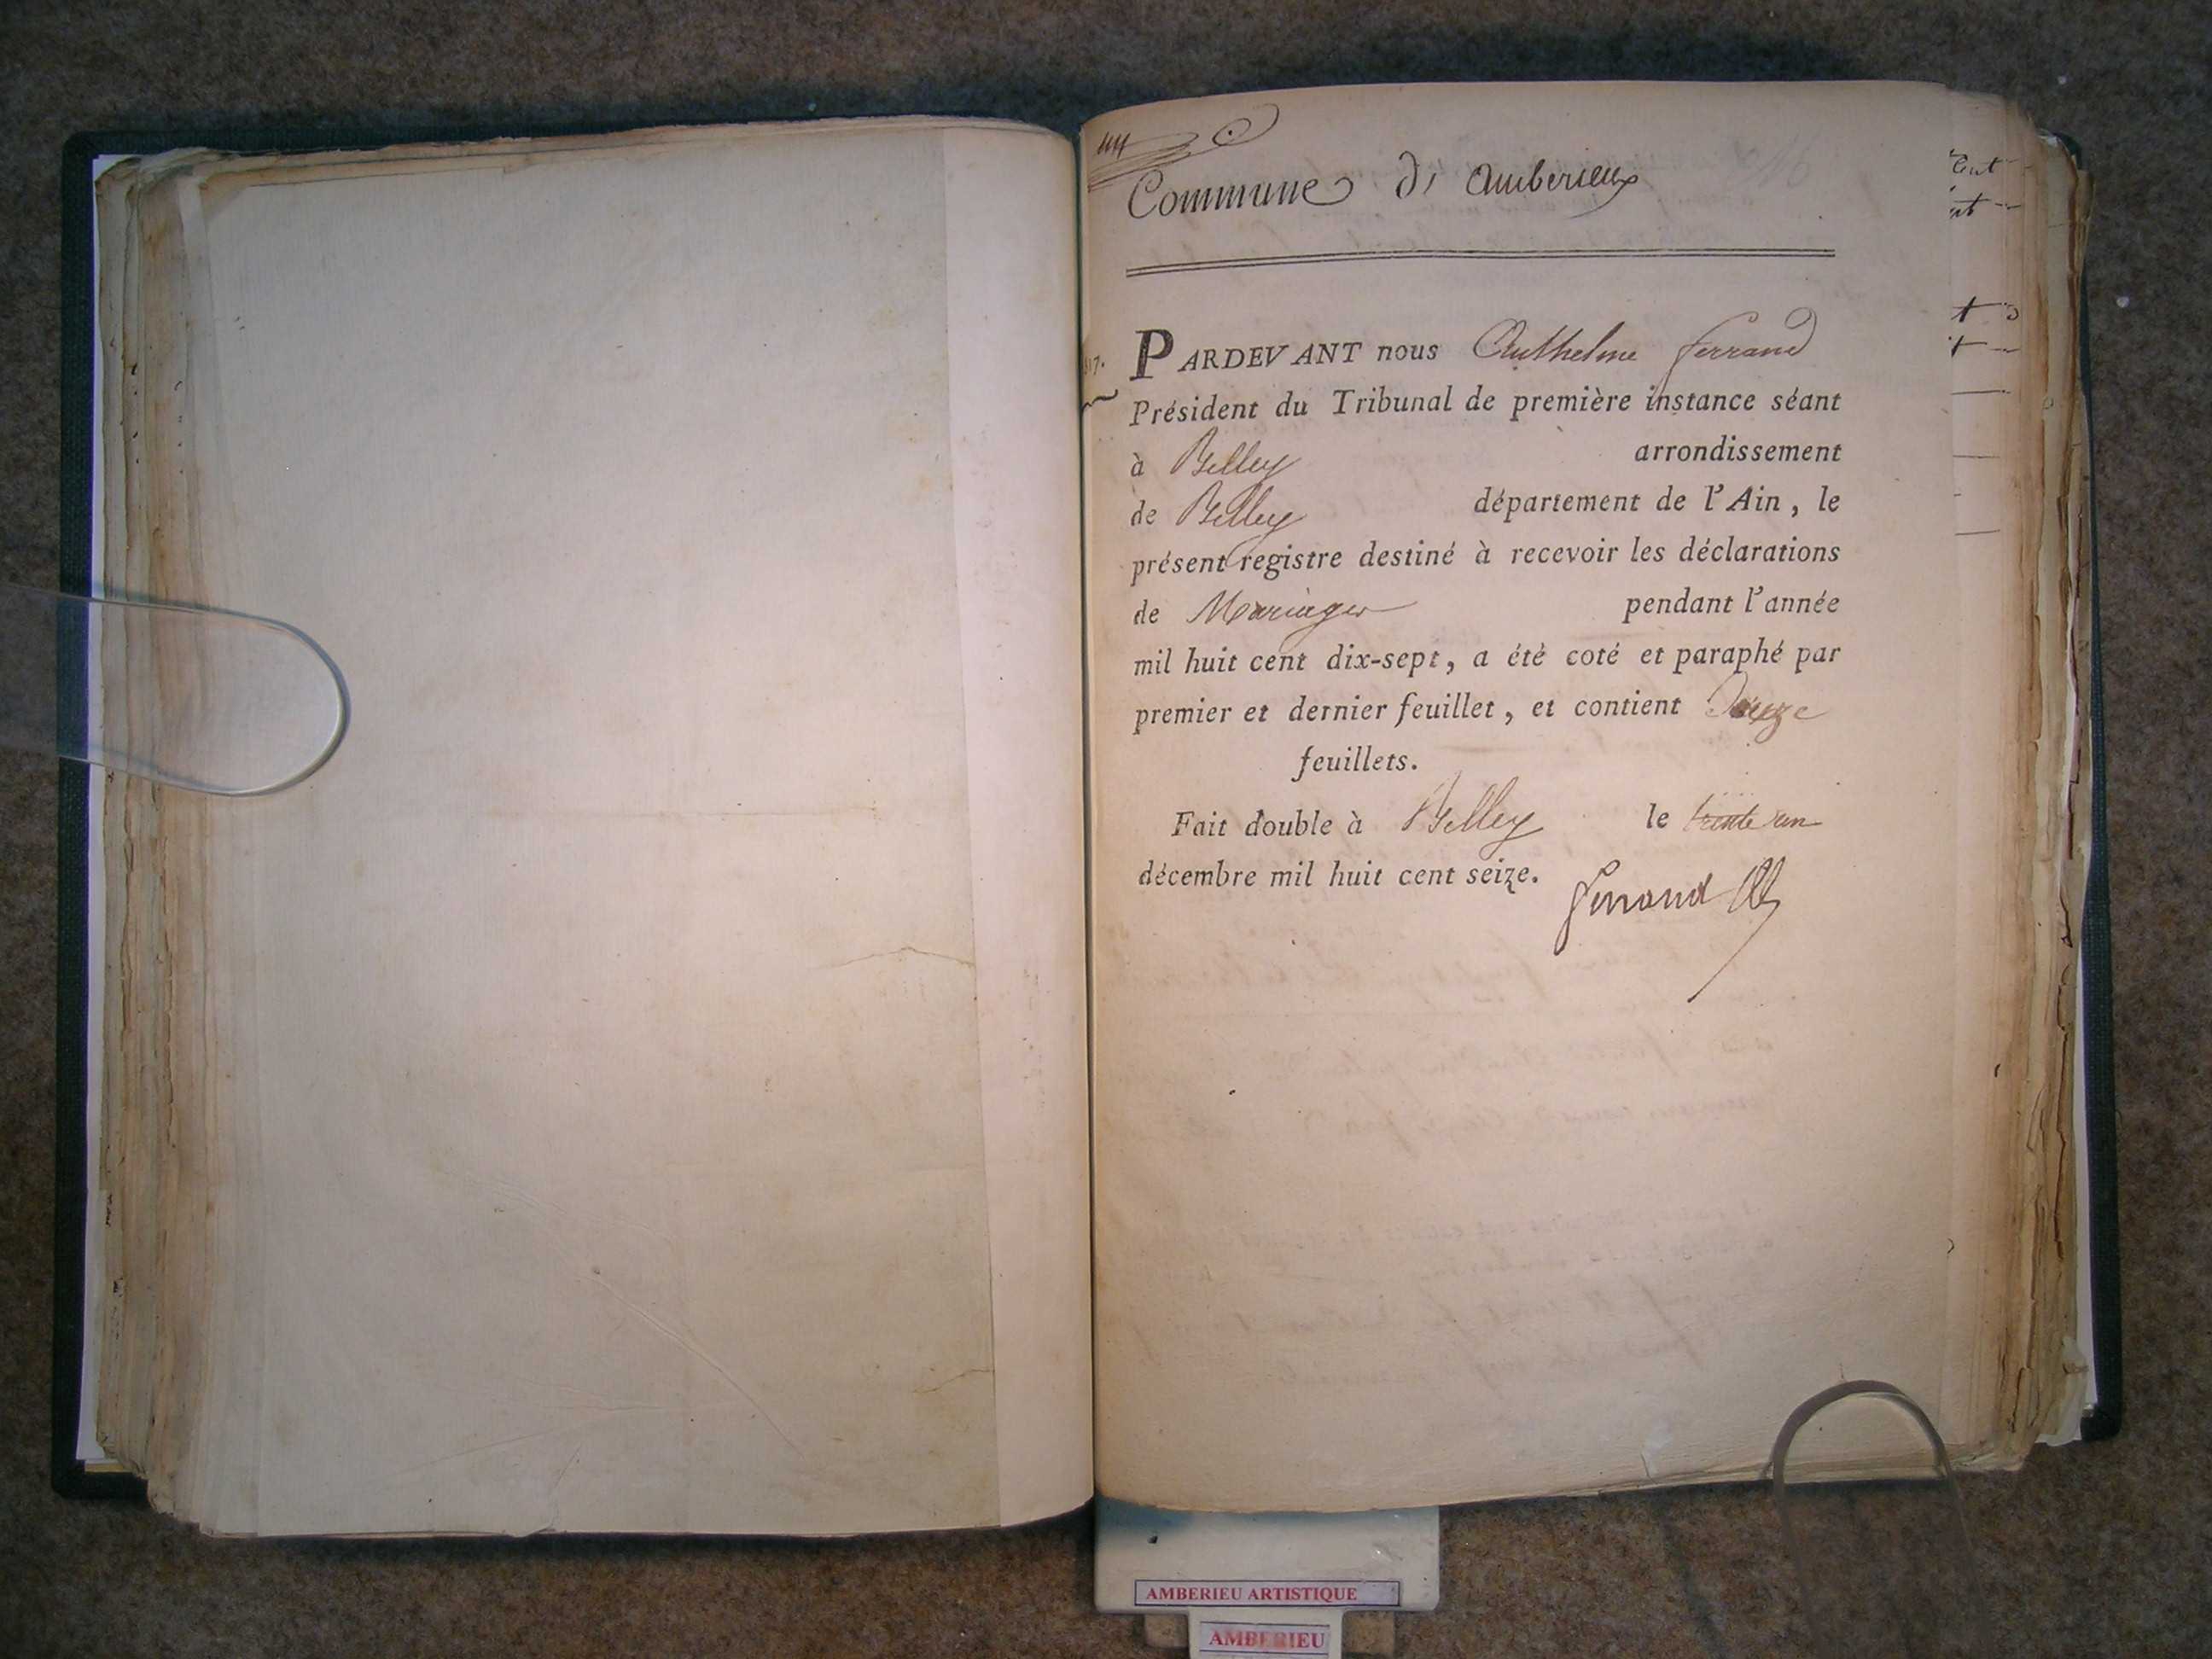 Commune d'Ambérieux
PARDEVANT nous Anthelme Ferrand
Président du Tribunal de première instance séant
à Belley arrondissement
de Belley département de l'Ain, le
présent registre destiné à recevoir les déclarations
de Mariages pendant l'année
mil huit cent dix-sept, a été coté et paraphé par
premier et dernier feuillet, et contient
feuillets.
Fait double à Belley le trente un
décembre mil huit cent seize.
Ferrand
AMBERIEU ARTISTIQUE
AMBERIEU